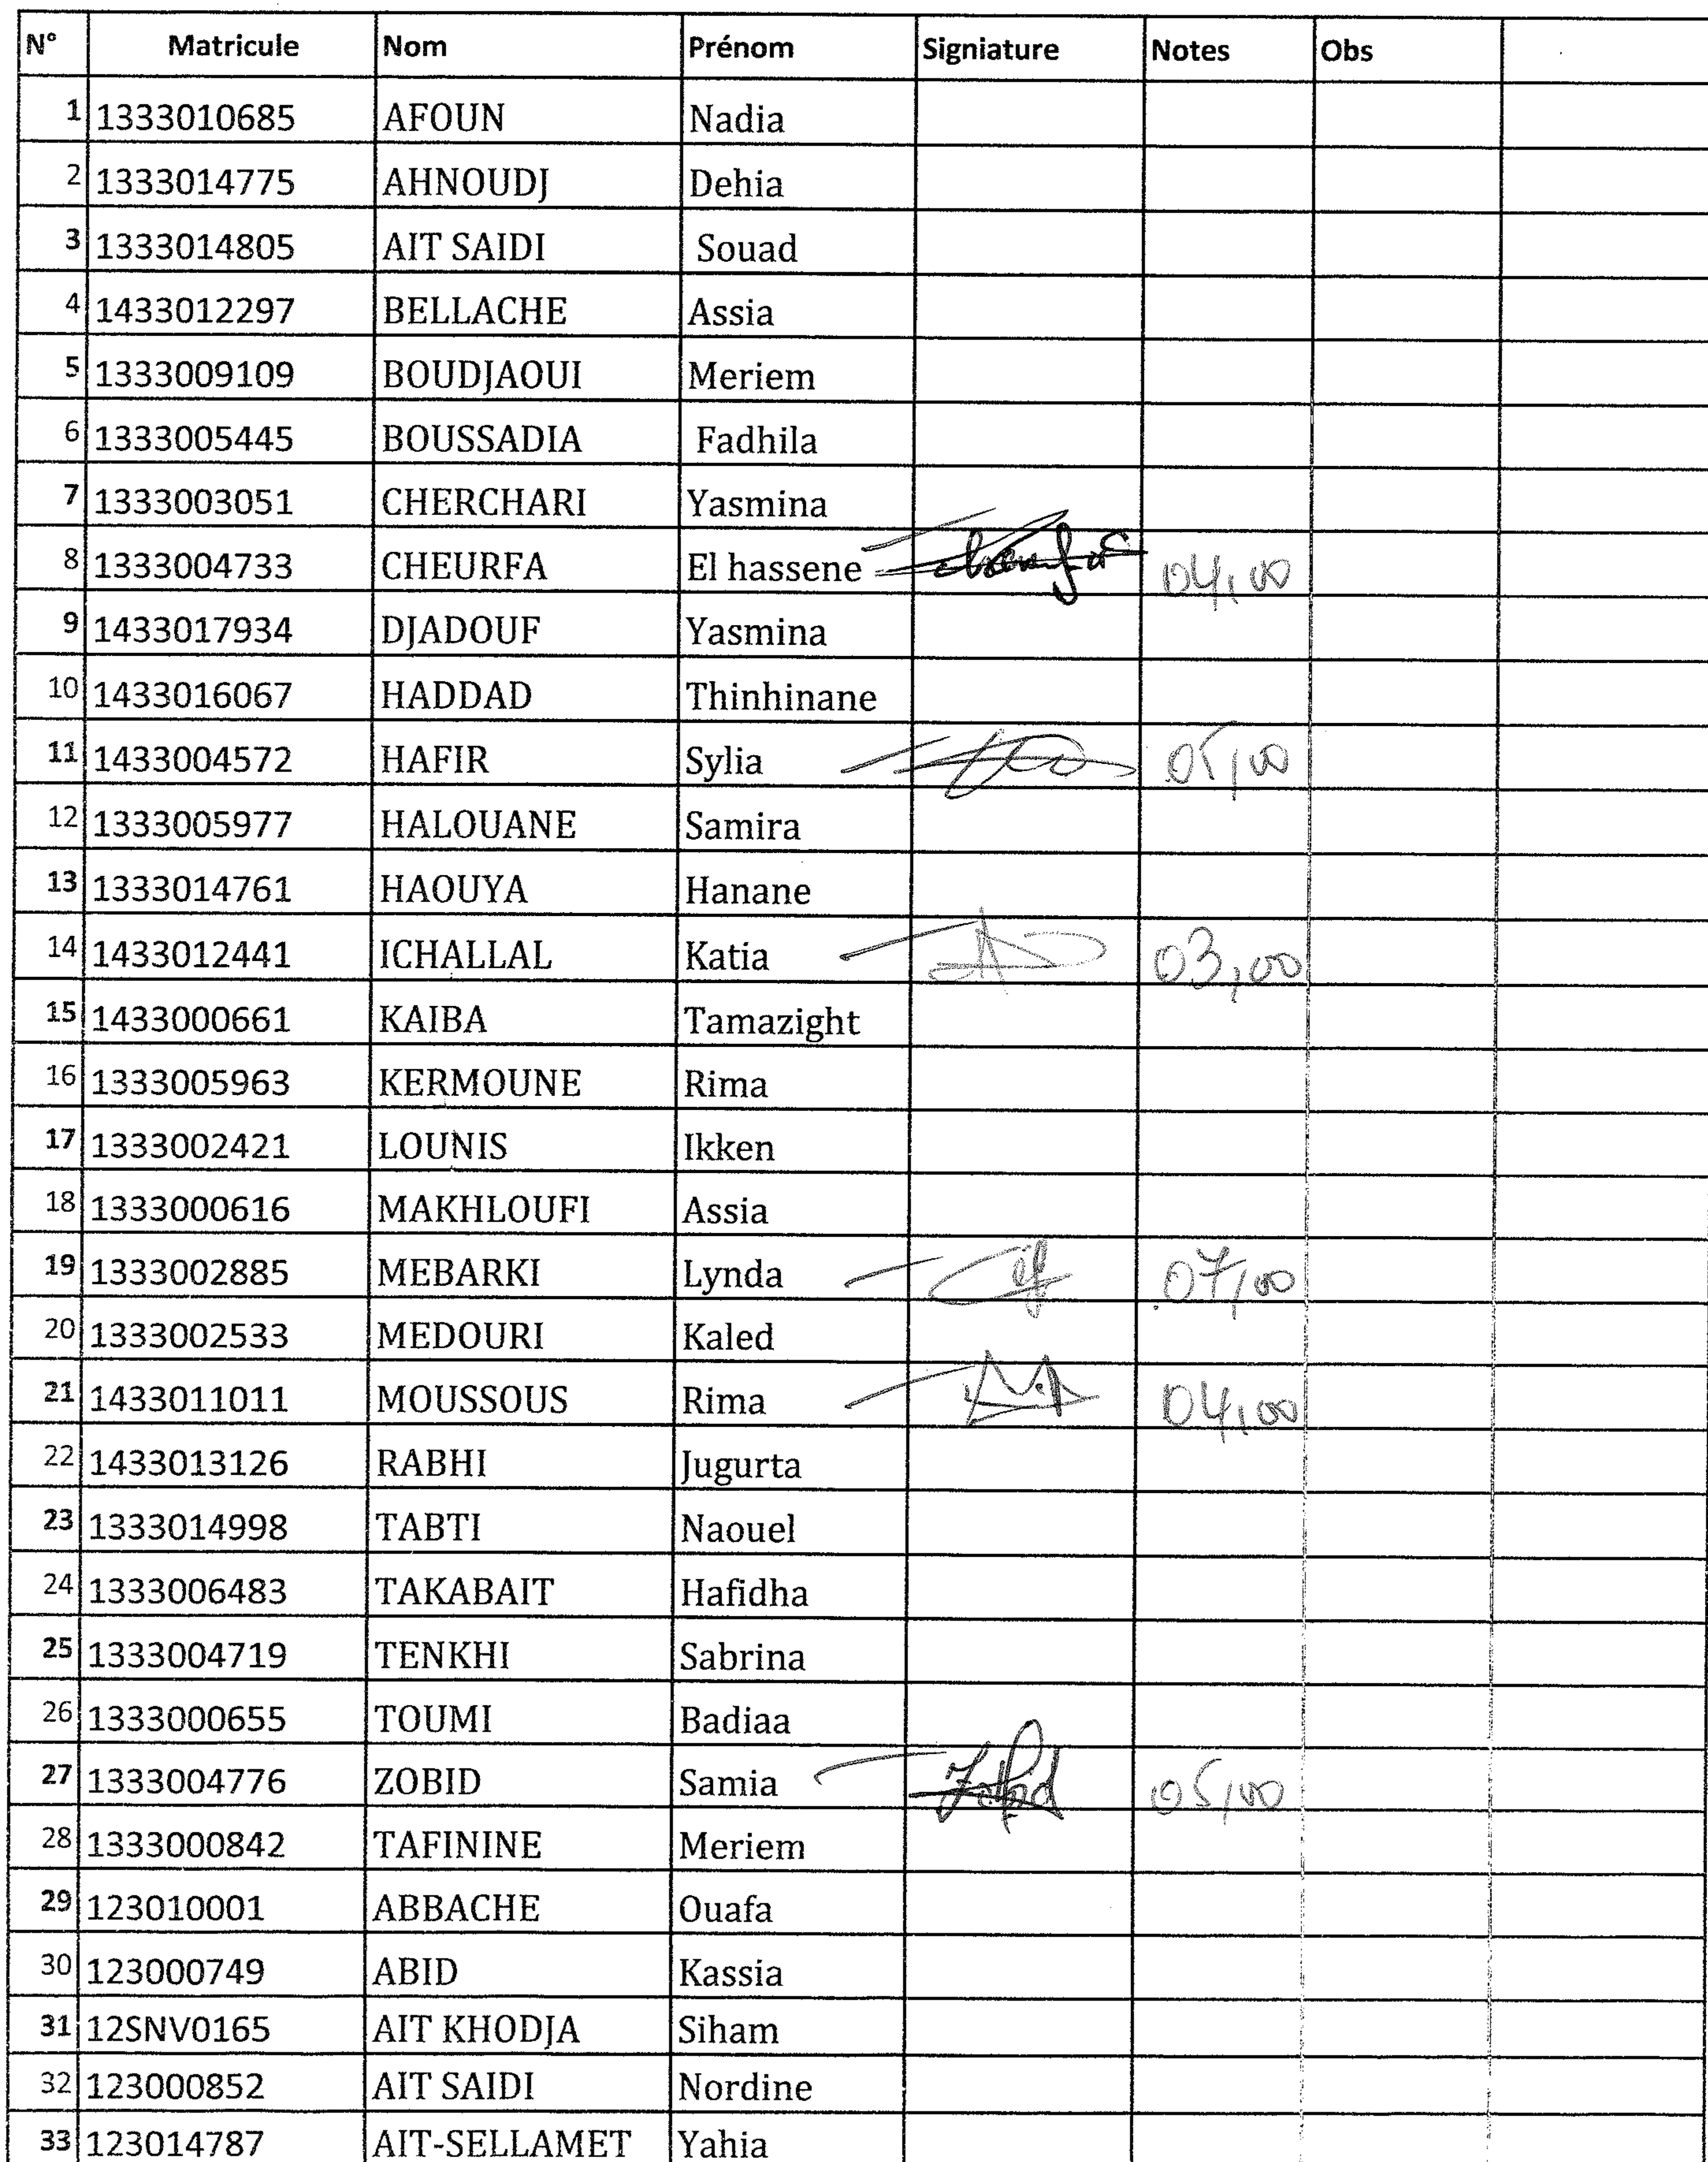 N° Matricule Nom Prénom Signiature Notes Obs
1 1333010685 AFOUN Nadia
2 1333014775 AHNOUDJ Dehia
3 1333014805 AIT SAIDI Souad
4 1433012297 BELLACHE Assia
5 1333009109 BOUDJAOUI Meriem
6 1333005445 BOUSSADIA Fadhila
7 1333003051 CHERCHARI Yasmina
8 1333004733 CHEURFA El hassene 04,00
9 1433017934 DJADOUF Yasmina
10 1433016067 HADDAD Thinhinane
11 1433004572 HAFIR Sylia 05,00
12 1333005977 HALOUANE Samira
13 1333014761 HAOUYA Hanane
14 1433012441 ICHALLAL Katia 03,00
15 1433000661 KAIBA Tamazight
16 1333005963 KERMOUNE Rima
17 1333002421 LOUNIS Ikken
18 1333000616 MAKHLOUFI Assia
19 1333002885 MEBARKI Lynda 07,00
20 1333002533 MEDOURI Kaled
21 1433011011 MOUSSOUS Rima 04,00
22 1433013126 RABHI Jugurta
23 1333014998 TABTI Naouel
24 1333006483 TAKABAIT Hafidha
25 1333004719 TENKHI Sabrina
26 1333000655 TOUMI Badiaa
27 1333004776 ZOBID Samia Zobid 05,00
28 1333000842 TAFININE Meriem
29 123010001 ABBACHE Ouafa
30 123000749 ABID Kassia
31 12SNV0165 AIT KHODJA Siham
32 123000852 AIT SAIDI Nordine
33 123014787 AIT-SELLAMET Yahia